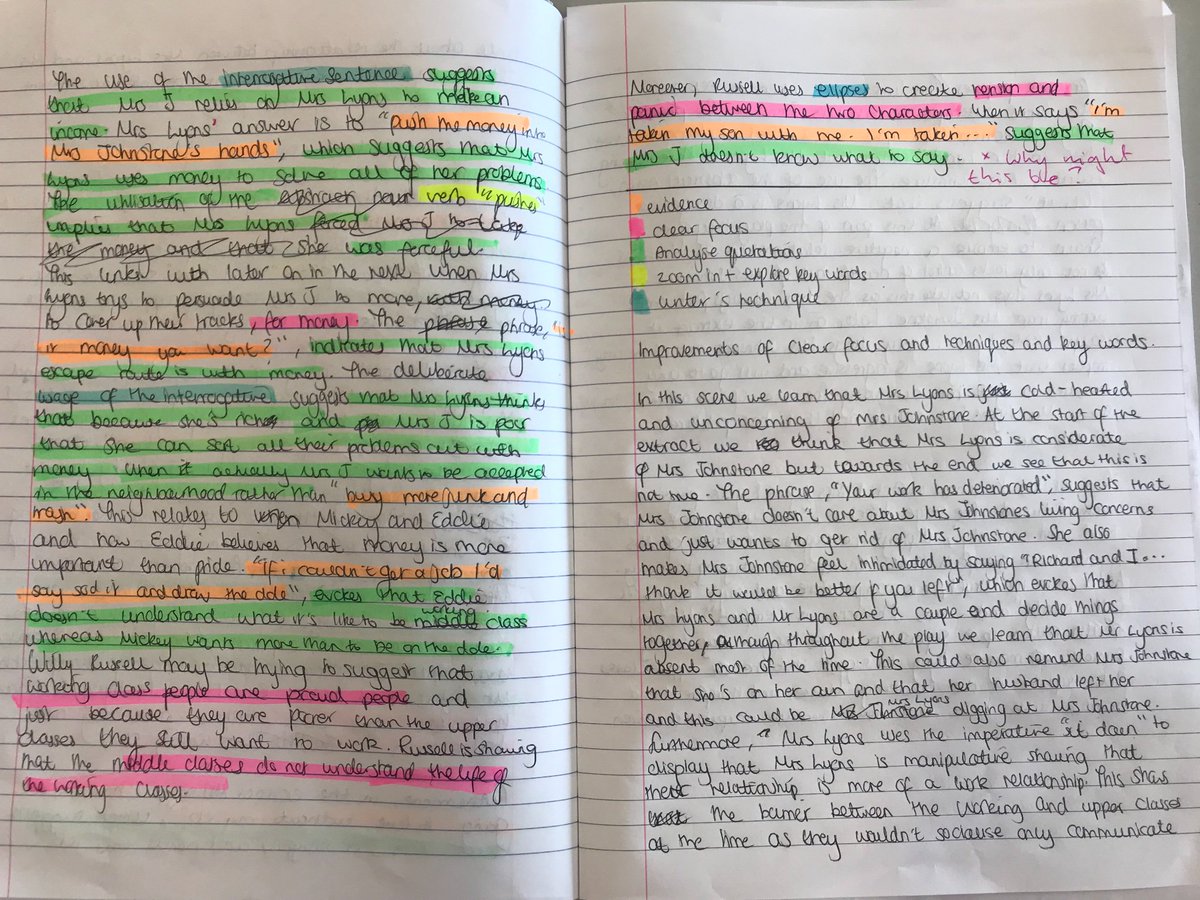 The use of the interrogative sentence suggests
that Mrs J relies on Mrs Lyons to make an
income. Mrs Lyons' answer is to "push the money into
Mrs Johnstone's hands", which suggests that Mrs
Lyons uses money to solve all of her problems
The utilisation of the verb "pushes"
implies that Mrs Lyons forced Mrs J to take
the money and that she was forceful.
This links with later on in the text when Mrs
Lyons trys to persuade Mrs J to move,
to cover up their tracks, for money. The phrase phrase, "
is money you want?", indicates that Mrs Lyons
escape route is with money. The deliberate
usage of the interrogative suggests that Mrs Lyons thinks
that because she's rich and Mrs J is poor
that she can sort all their problems out with
money when it actually Mrs J wants to be accepted
in the neighbourhood rather than "buy more junk and
trash". This relates to when Mickey and Eddie
and how Eddie believes that money is more
important than pride. "If i couldn't get a job I'd
say sod it and draw the dole", evokes that Eddie
doesn't understand what it's like to be middle working class
whereas Mickey wants more than to be on the dole.
Willy Russell may be trying to suggest that
working class people are proud people and
just because they are poorer than the upper
classes they still want to work. Russell is showing
that the middle classes do not understand the life of
the working classes.
Moreover, Russell uses ellipses to create tension and
panic between the two characters. When it says "I'm
taken my son with me. I'm taken..." suggests that
Mrs J doesn't know what to say. * Why might
this be?
evidence
clear focus
Analyse quotations
zoom in + explore key words
writer's technique
Improvements of clear focus and techniques and key words.
In this scene we learn that Mrs Lyons is cold-hearted
and unconcerning of mrs Johnstone. At the start of the
extract we think that Mrs Lyons is considerate
of Mrs Johnstone but towards the end we see that this is
not true. The phrase, "Your work has deteriorated", suggests that
Mrs Johnstone doesn't care about Mrs Johnstones living concerns
and just wants to get rid of Mrs Johnstone. She also
makes Mrs Johnstone feel intimidated by saying "Richard and I...
think it would be better if you left", which evokes that
Mrs Lyons and Mr Lyons are a couple and decide things
together, although throughout the play we learn that Mr Lyons is
absent most of the time. This could also remind Mrs Johnstone
that she's on her own and that her husband left her
and this could be Mrs Johnstone Mrs Lyons digging at Mrs Johnstone.
Furthermore, " Mrs Lyons uses the imperative "sit down" to
display that Mrs Lyons is manipulative showing that
their relationship is more of a work relationship. This shows
the barrier between the working and upper classes
at the time as they wouldn't socialise only communicate